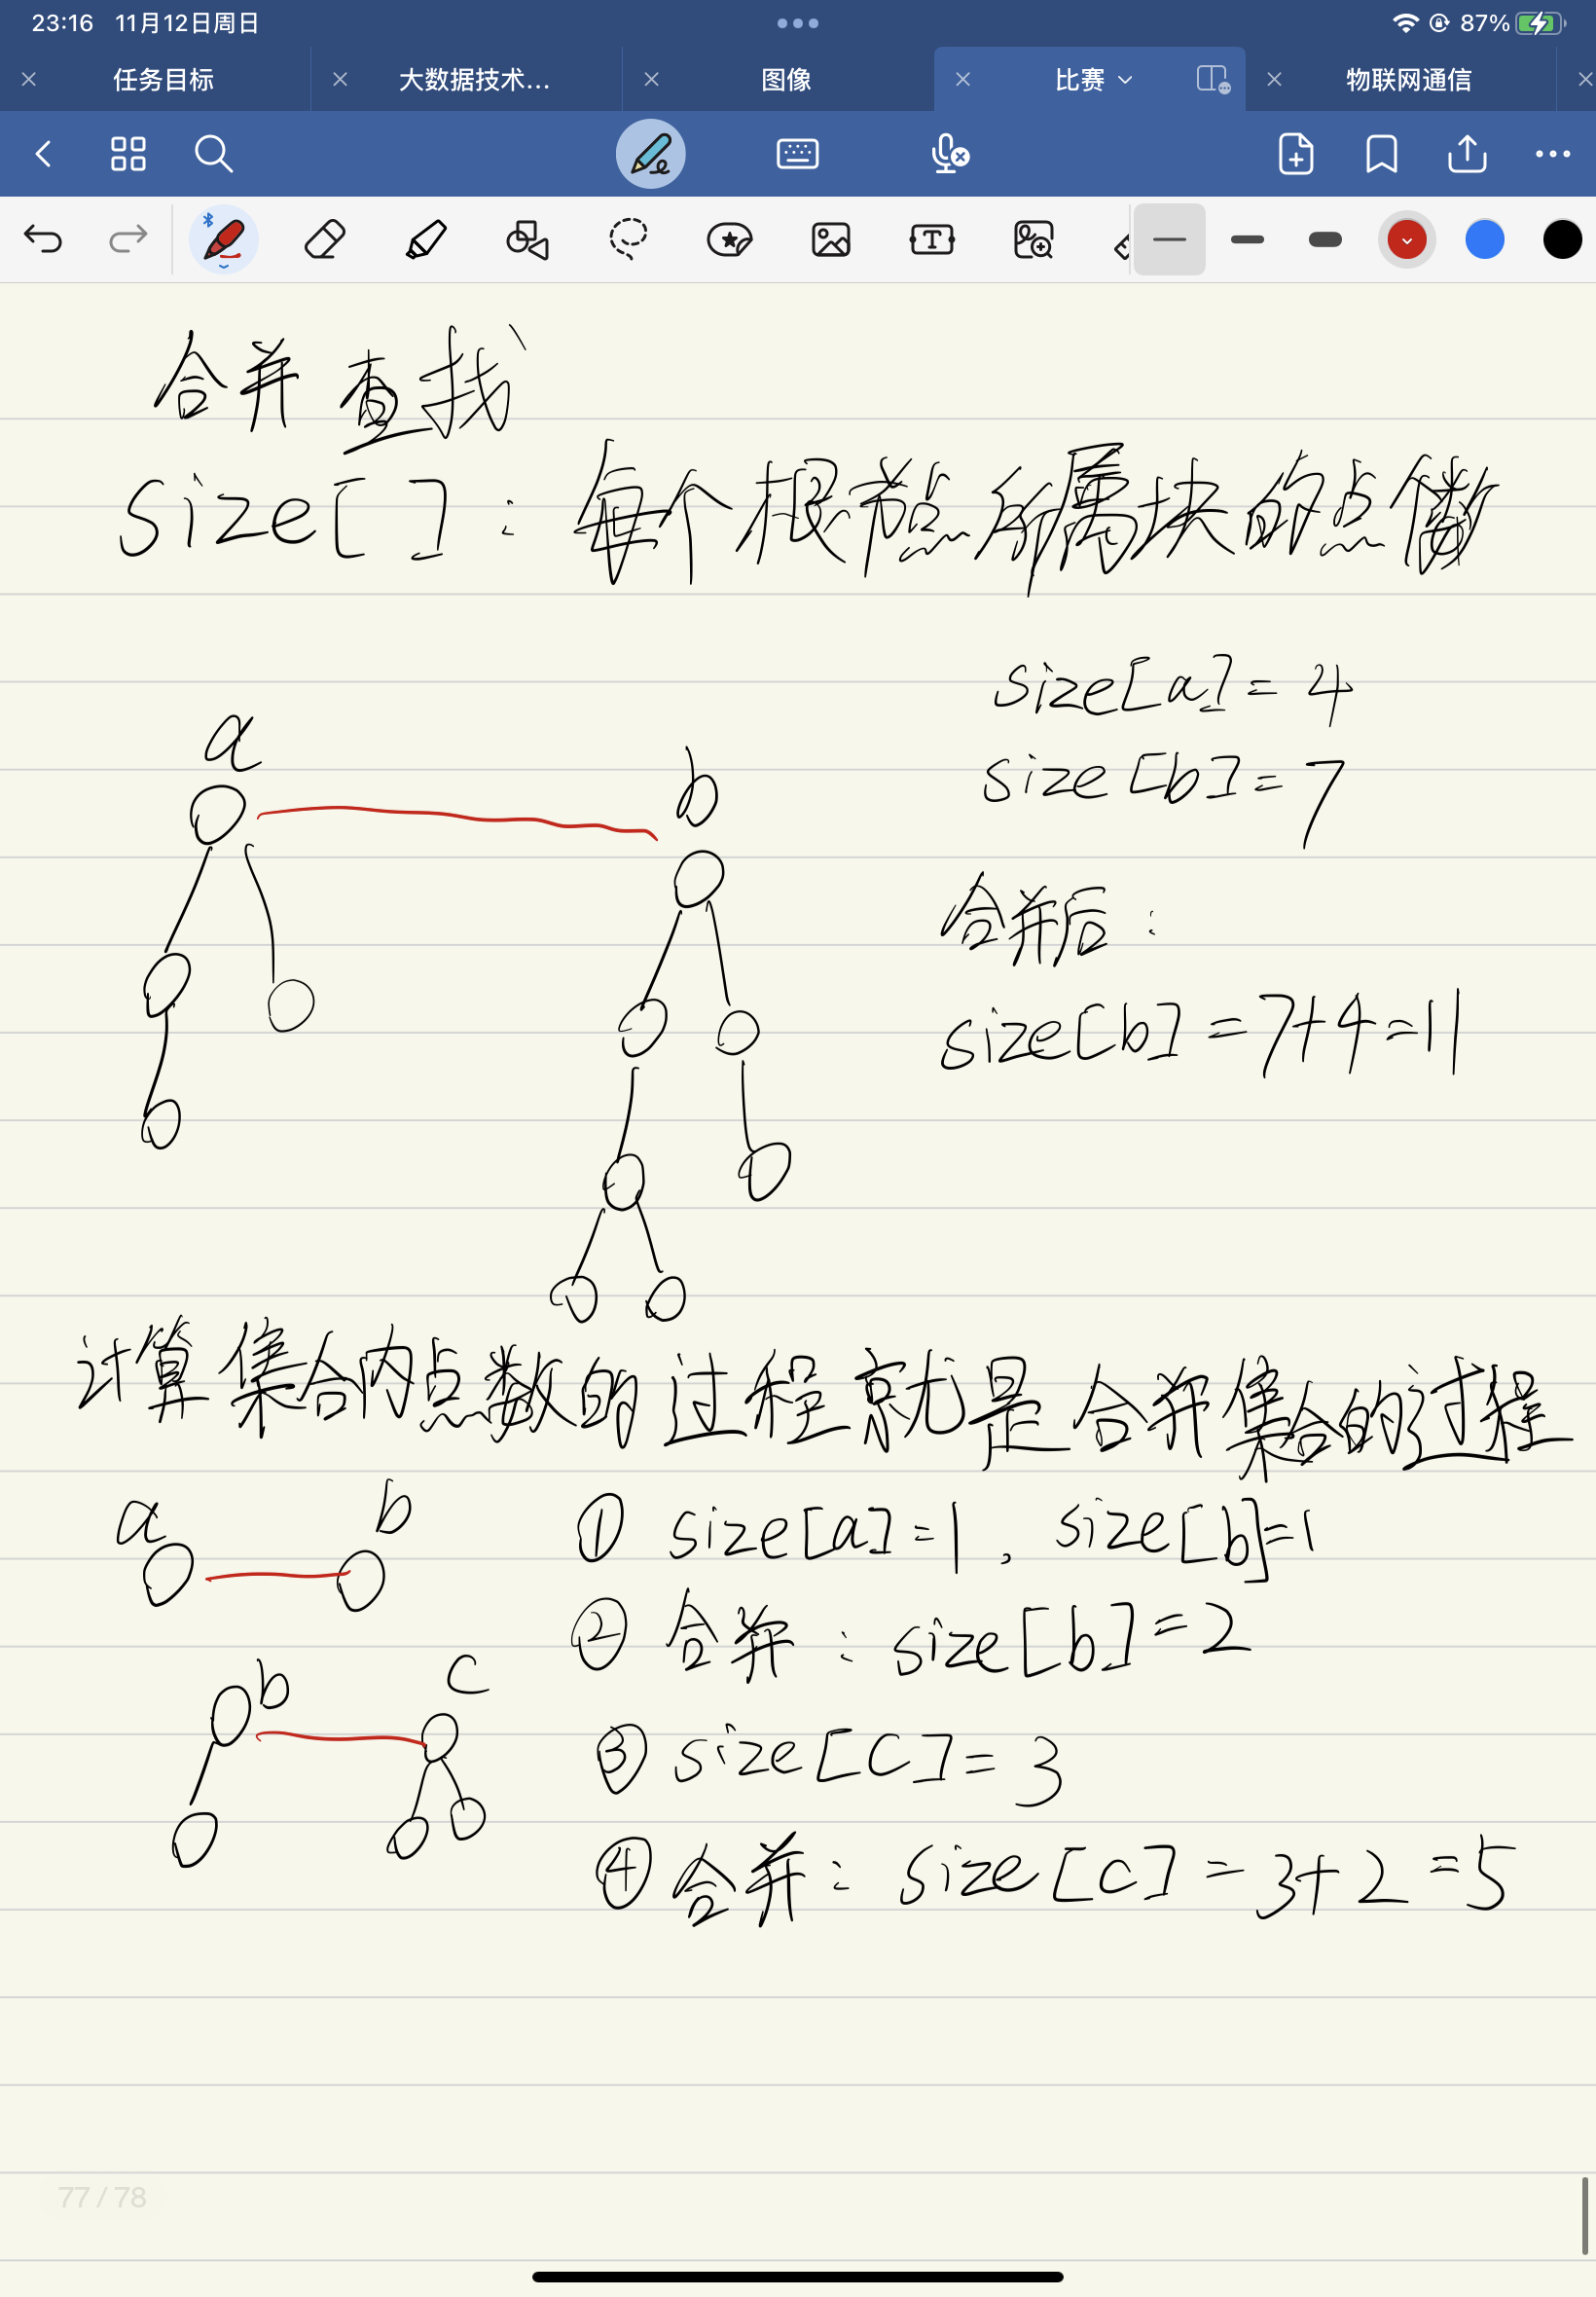 23:16 11月12日周日
87%
任务目标
大数据技术...
图像
比赛
物联网通信
合并 查找
size[ ]：每个根节点所属块的点数
size[a]=4
a
b
size[b]=7
合并后：
size[b]=7+4=11
计算集合内点数的过程就是合并集合的过程
a b
① size[a]=1，size[b]=1
② 合并：size[b]=2
b c
③ size[c]=3
④ 合并：size[c]=3+2=5
77 / 78